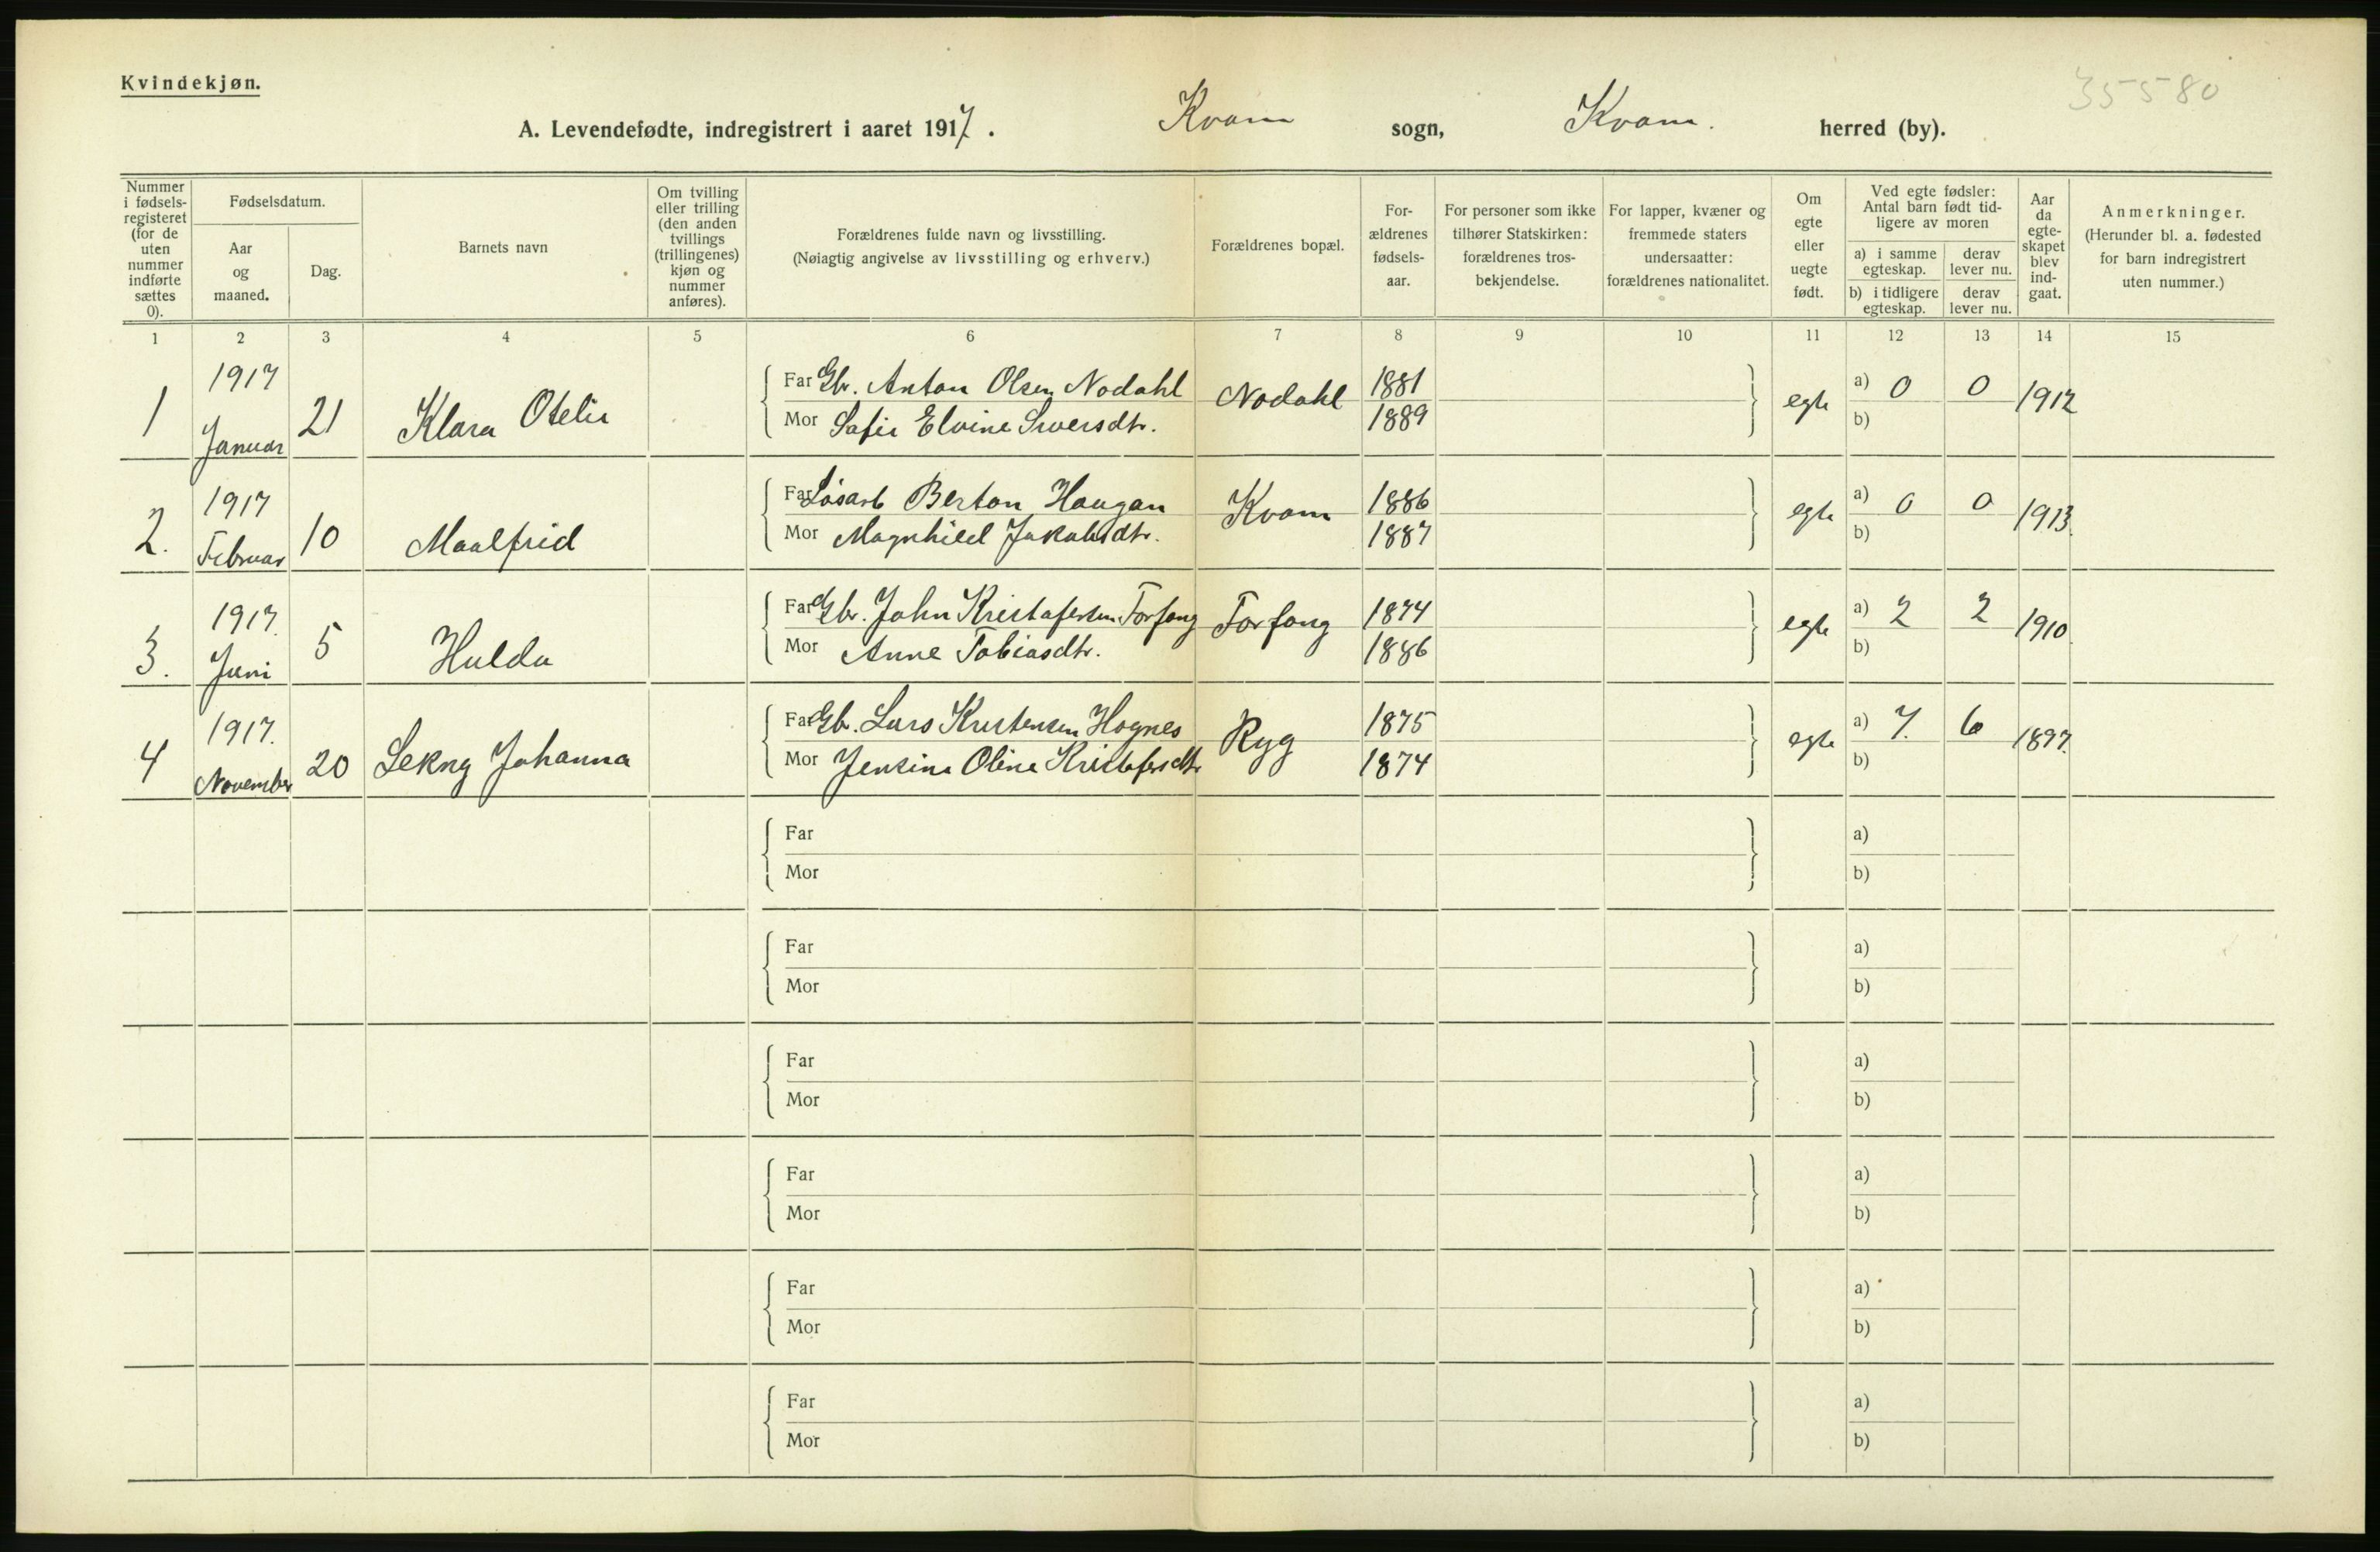 Kvindekjøn.
35580
A. Levendefødte, indregistrert i aaret 1917. Kvam sogn, Kvam. herred (by).
Nummer i fødsels-registeret (for de uten nummer indførte sættes 0).
Fødselsdatum.
Aar og maaned.
Dag.
Barnets navn
Om tvilling eller trilling (den anden tvillings (trillingenes) kjøn og nummer anføres).
Forældrenes fulde navn og livsstilling.
(Nøiagtig angivelse av livsstilling og erhverv.)
Forældrenes bopæl.
For-ældrenes fødsels-aar.
For personer som ikke tilhører Statskirken: forældrenes tros-bekjendelse.
For lapper, kvæner og fremmede staters undersaatter: forældrenes nationalitet.
Om egte eller uegte født.
Ved egte fødsler: Antal barn født tid-ligere av moren
a) i samme egteskap.
derav lever nu.
b) i tidligere egteskap.
derav lever nu.
Aar da egte-skapet blev ind-gaat.
Anmerkninger.
(Herunder bl. a. fødested for barn indregistrert uten nummer.)
1 2 3 4 5 6 7 8 9 10 11 12 13 14 15
1 1917 Januar 21 Klara Otelie
Far Gbr. Anton Olsen Nodahl Nodahl 1881 egte a) 0 0 1912
Mor Safie Elvine Siversdtr. 1889 b)
2. 1917 Februar 10 Maalfrid
Far Løsarb Berton Haugan Kvam 1886 egte a) 0 0 1913.
Mor Magnhild Jakobsdtr. 1887 b)
3. 1917. Juni 5 Hulda
Far Gbr. John Kristofersen Forfang Forfang 1874 egte a) 2 2 1910
Mor Anne Tobiasdtr. 1886 b)
4 1917. November 20 Johanna
Far Gbr. Lars Kristensen Hognes Ryg 1875 egte a) 7. 6 1897.
Mor Jensine Oline Kristofersdtr 1874 b)
Far a)
Mor b)
Far a)
Mor b)
Far a)
Mor b)
Far a)
Mor b)
Far a)
Mor b)
Far a)
Mor b)